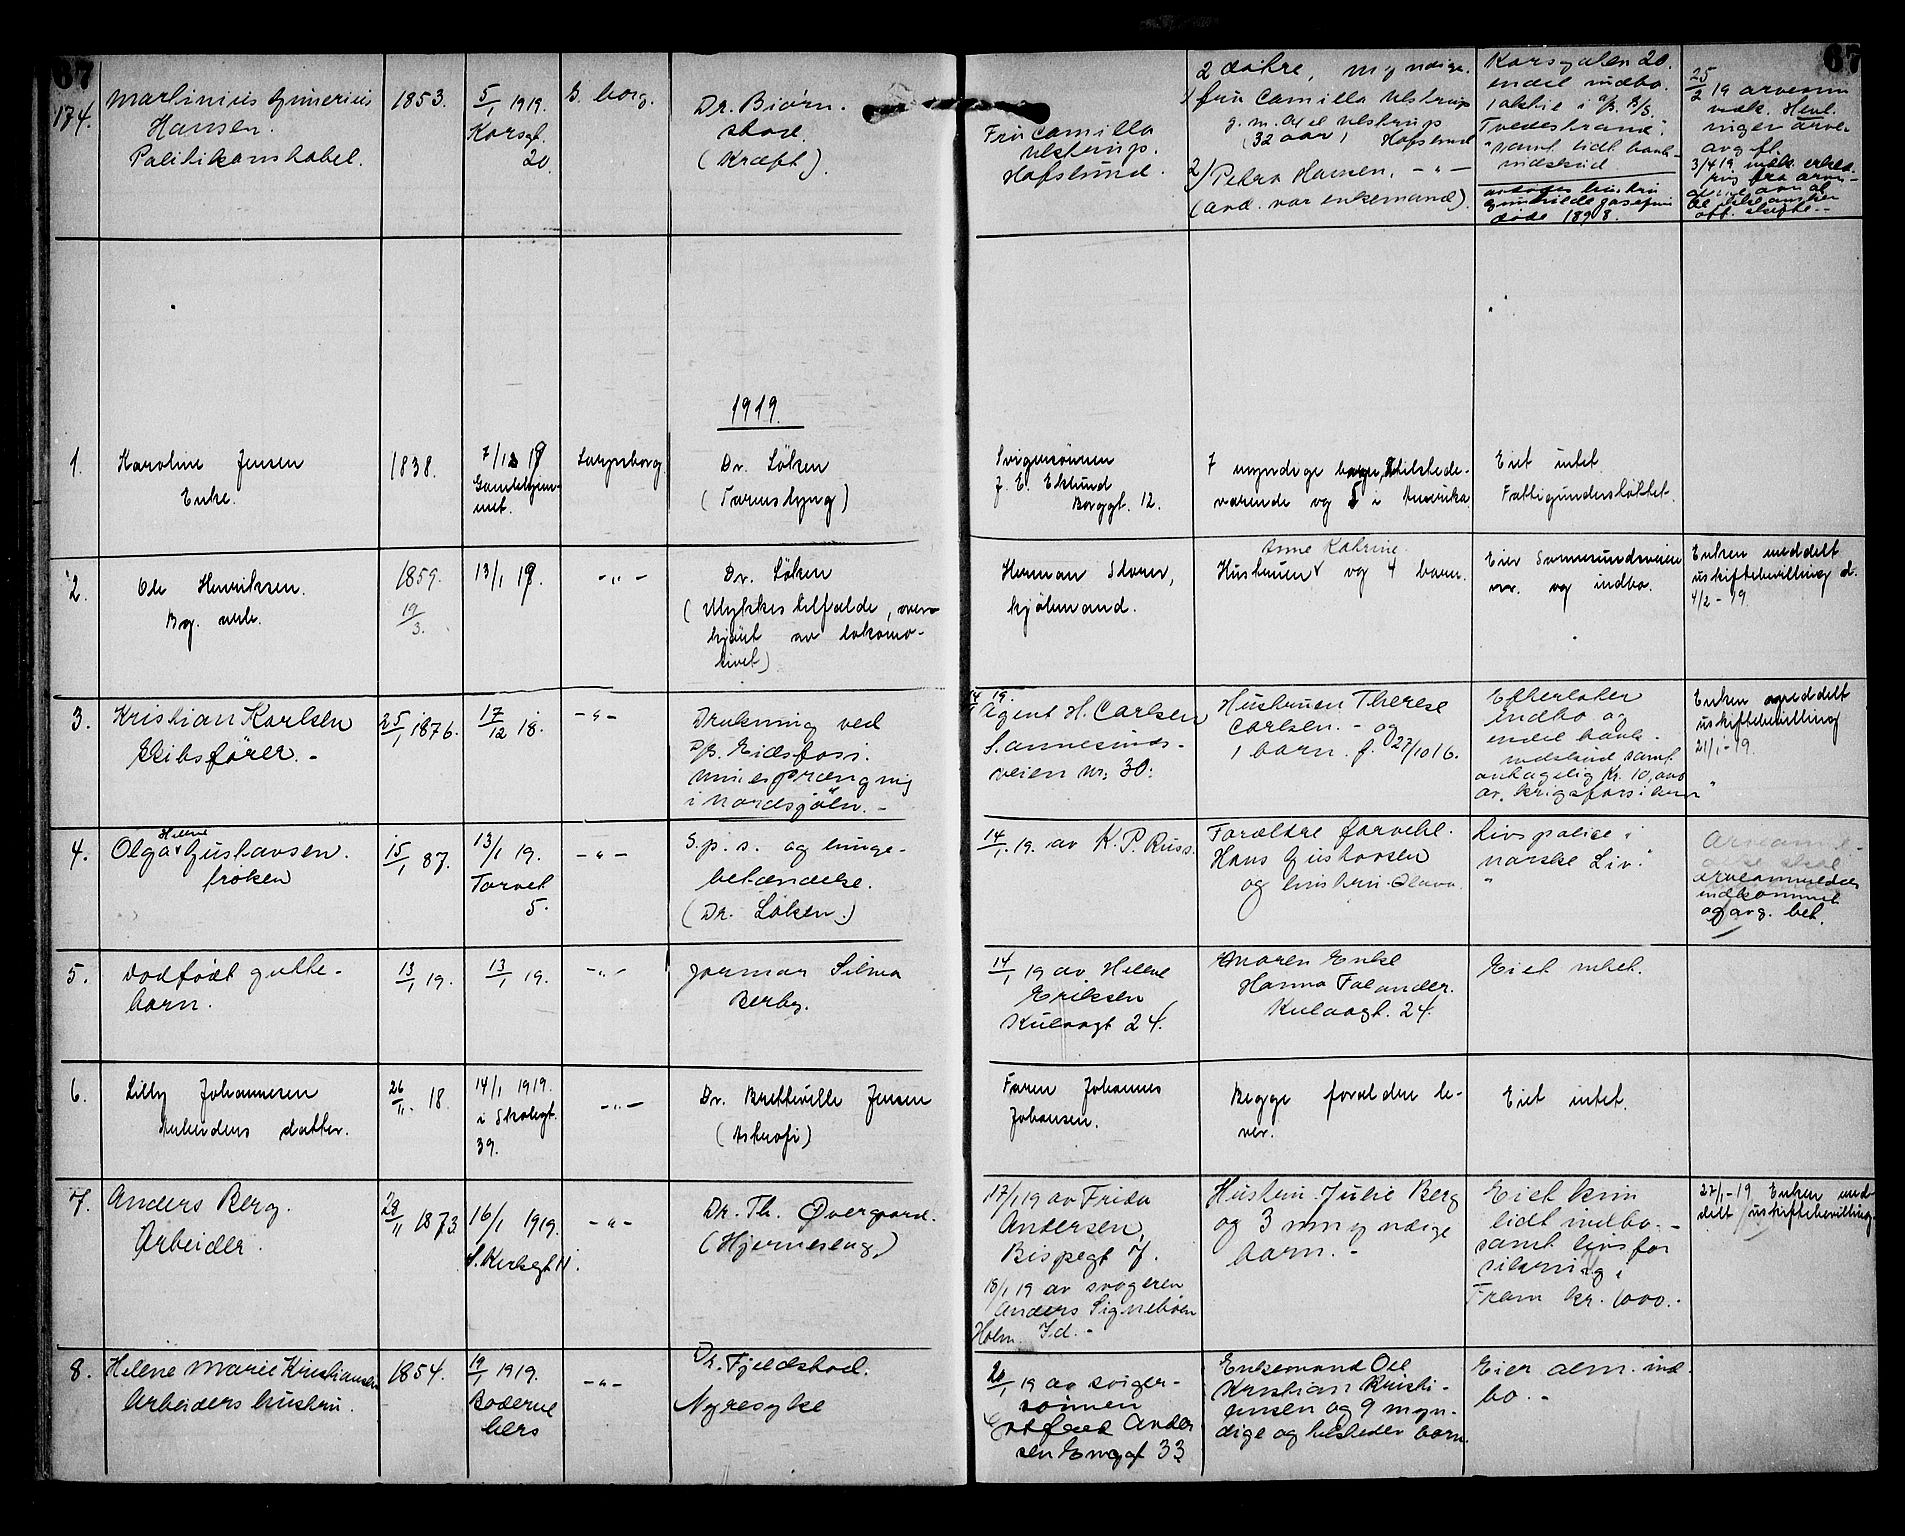 67
67
174.
Martinius Gunerius
Hansen.
Politikonstabel.
1853.
5/1 1919.
Korsgt.
20.
S. borg.
Dr. Bjørn-
stad.
(Kræft).
Fru Camilla
Ulstrup.
Hafslund.
2 døtre, myndige.
1) fru Camilla Ulstrup
g. m. Ulstrup
(32 aar) Hafslund
2) Petra Hansen. - " -
(avd. var enkemand).
Korsgaten 20.
endel indbo.
1 aktie i
Tvedestrand".
samt lidt bank-
indskud
avdødes hustru
døde 1898.
25/2 19
indk.
arve-
avg. ft.
3/4 19 indk.
off. skifte.
1919.
1.
Karoline Jensen
Enke.
1838.
7/1 19
Gamlehjem-
met.
Sarpsborg.
Dr. Löken
(Tarmslyng)
Svigersønnen
J. E. Eklund
Borggt. 12.
7 myndige barn, tilstede-
værende og i Amerika.
Eiet intet.
Fattigunderstøttet.
2.
Ole Henriksen.
1859.
19/3.
13/1 19.
- " -
Dr. Löken
(Ulykkestilfælde, over-
kjørt av lokomo-
tivet)
Herman Storer,
kjöbmand.
Anne Katrine.
Hustruen og 4 barn.
Eier Sannesundsveien
nr. og indbo.
Enken meddelt
uskiftebevilling d.
4/2 - 19.
3.
Kristian Karlsen
Skibsfører. -
25/1 1876.
17/12 18.
- " -
Drukning ved
D/S. Eidsfoss.
minesprængning
i Nordsjöen. -
14/1 19.
Agent H. Carlsen
Sannesunds-
veien nr. 30.
Hustruen Therese
Carlsen. - og
1 barn. f. 27/10 16.
Efterlater
indbo og
endel bank-
indskud samt
antagelig kr. 10,000
av krigsforsikring
Enken meddelt
uskiftebevilling
21/1 - 19.
4.
Helene
Olga Gustavsen.
frøken
15/1 87.
13/1 19.
Torvet
5.
- " -
S.p.s. og lunge-
betændelse.
(Dr. Löken.)
14/1. 19. av K. P. Russ.
Forældre
Hans Gustavsen
og hustru Olava.
Livspolice i
"norske Liv".
arveanmeldelse
indkommet
og avg. bet.
5.
Dødfødt gutte-
barn.
13/1 19.
13/1 19.
- " -
Jormor Silma
Berby.
14/1 19 av Helene
Eriksen
Kulaasgt 24.
Moren Enke
Hanna Falander.
Kulaasgt. 24.
Eiet intet.
6.
Lilly Johannesen
Arbeiders datter.
26/11. 18.
14/1 1919.
i Skolegt.
39.
- " -
Dr. Bretteville Jensen
(Atrofi)
Faren Johannes
Johansen.
Begge forældre le-
ver.
Eiet intet.
7.
Anders Berg.
Arbeider.
28/11 1873.
16/1 1919.
S. Kirkegt 11.
- " -
Dr. Th. Övergaard.
(Hjerneslag)
17/1 19 av Frida
Andersen,
Bispegt 7.
18/1 19 av svogeren
Anders Signebøen
Holm. Id. -
Hustru Julie Berg
og 3 umyndige
barn. -
Eiet kun
lidt indbo. -
samt livsfor
sikring i
Fram kr. 1000. -
27/1 - 19 Enken med-
delt uskiftebevilling.
8.
Helene Marie Kristiansen
Arbeiders hustru.
1854.
19/1 1919.
Boderne
- " -
Dr. Fjeldstad.
Nyresyke
20/1 19 av sviger-
sønnen
Ander
sen Enggt 33
Enkemand Ole
Kristian Kristi-
ansen og 9 myn-
dige og tilsteder barn.
Eier alm. ind
bo. -